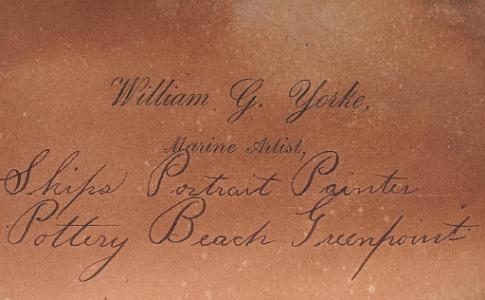 William G. Yorke,
Marine Artist,
Ships Portrait Painter
Pottery Beach Greenpoint